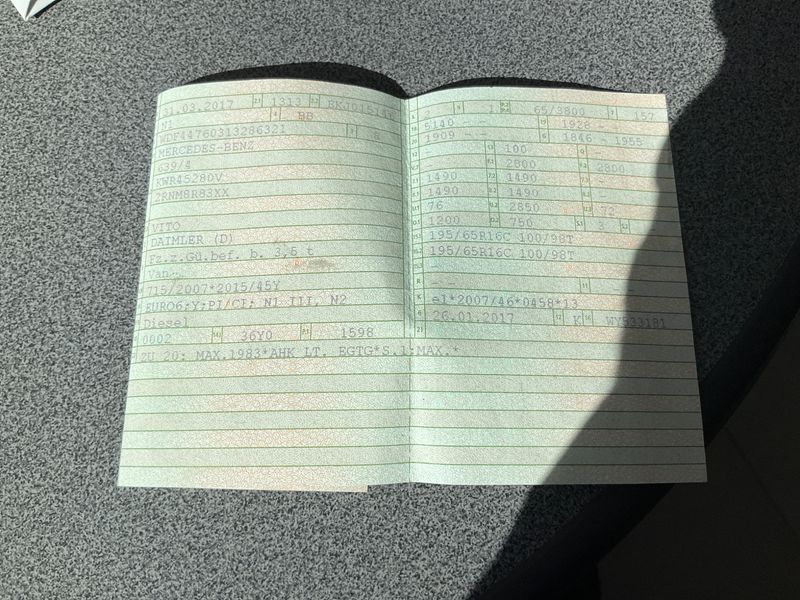 31.03.2017 1313
N1 BB
WDF44760313286321 8
MERCEDES-BENZ
639/4
KWR4528DV
ZRNM8RB3XX
VITO
DAIMLER (D)
Fz.z.Gü.bef. b. 3,5 t
Van
715/2007*2015/45Y
EURO6;Y;PI/CI; N1 III, N2
Diesel
0002 36Y0 1598
ZU 20: MAX.1983*AHK LT. EGTG*S.1:MAX.*
2 1 65/3800 157
5140 - - 1928 -
1909 - - 1846 - 1955
100
2800 2800
1490 1490
1490 1490
76 2850 72
1200 750 3
195/65R16C 100/98T
195/65R16C 100/98T
- -
- - - -
e1*2007/46*0458*13
26.01.2017 K WY533181